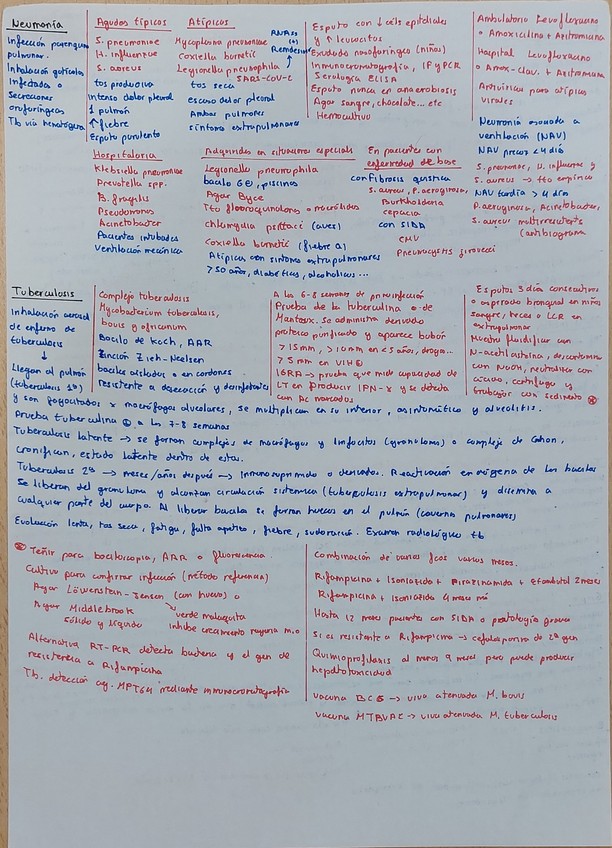 Neumonía
Infección parenquima
pulmonar.
Inhalación gotículas
infectadas o
secreciones
orofaríngeas
Tb vía hematógena
Agudos típicos
S. pneumoniae
H. influenzae
S. aureus
tos productiva
intenso dolor pleural
1 pulmón
↑ fiebre
Esputo purulento
Atípicos
Mycoplasma pneumoniae
Coxiella burnetii
Legionella pneumophila
SARS-CoV-2
ANAss
(+)
Remdesivir
tos seca
escaso dolor pleural
Ambos pulmones
síntomas extrapulmonares
Esputo con ↓ cels epiteliales
y ↑ leucocitos
Exudado nasofaríngeo (niños)
Inmunocromatografía, IF y PCR
Serología ELISA
Esputo nunca en anaerobiosis
Agar sangre, chocolate... etc
Hemocultivo
Ambulatorio Levofloxacino
o Amoxicilina + Azitromicina
Hospital Levofloxacino
o Amox-clau. + Azitromicina
Antivirías para atípicas
virales
Neumonía asociada a
ventilación (NAV)
NAV precoz ≤4 día
S. pneumoniae, H. influenzae y
S. aureus → tto empírico
NAV tardía > 4 días
P. aeruginosa, Acinetobacter,
S. aureus multirresistente
(antibiograma
Hospitalaria
Klebsiella pneumoniae
Prevotella spp.
B. fragilis
Pseudomonas
Acinetobacter
Pacientes intubados
Ventilación mecánica
Adquiridas en situaciones especiales
Legionella pneumophila
bacilo G⊖, piscinas
Agar Byce
Tto fluoroquinolonas o macrólidos
Chlamydia psittaci (aves)
Coxiella burnetii (fiebre Q)
Atípicas con síntomas extrapulmonares
> 50 años, diabéticos, alcohólicos...
En pacientes con
enfermedad de base
con Fibrosis quística
S. aureus, P. aeruginosa,
Burkholderia
cepacia
con SIDA
CMV
Pneumocystis jirovecii
Tuberculosis
Inhalación aerosol
de enfermo de
tuberculosis
↓
Llegan al pulmón
(tuberculosis 1ª)
Complejo tuberculosis
Mycobacterium tuberculosis,
bovis y africanum
Bacilo de Koch, AAR
Tinción Zieh-Neelsen
bacilos aislados o en cordones
resistente a desecación y desinfectantes
A las 6-8 semanas de primoinfección
Prueba de la tuberculina o de
Mantoux. Se administra derivado
proteico purificado y aparece bubón
> 15mm, > 10mm en <5 años, drogas...
> 5 mm en VIH⊕
IGRA → prueba que mide capacidad de
LT en producir IFN-γ y se detecta
con Ac marcados
Esputos 3 días consecutivos
o aspirado bronquial en niños
sangre, heces o LCR en
extrapulmonar
Muestra fluidificar con
N-acetilcisteína, descontaminar
con NaOH, neutralizar con
ácido. centrifugo y
trabajar con sedimento ⊛
y son fagocitados x macrófagos alveolares, se multiplican en su interior, asintomático y alveolitis.
Prueba tuberculina ⊕ a las 7-8 semanas
Tuberculosis latente → se forman complejos de macrófagos y linfocitos (granulomas) o complejo de Gohon,
cronifican, estado latente dentro de estas.
Tuberculosis 2ª → meses/años después → Inmunosuprimido o derivados. Reactivación endógena de los bacilos
Se liberan del granuloma y alcanzan circulación sistémica (tuberculosis extrapulmonar) y disemina a
cualquier parte del cuerpo. Al liberar bacilos se forman huecos en el pulmón (caverna pulmonares)
Evolución lenta, tos seca, fatiga, falta apetito, fiebre, sudoración. Examen radiológico tb
⊛ Teñir para baciloscopia, AAR o fluorescencia.
Cultivo para confirmar infección (método referencia)
Agar Löwenstein-Jensen (con huevo) o
Agar Middlebrook
sólido y líquido
verde malaquita
inhibe crecimiento mayoría m.o
Alternativa RT-PCR detecta bacteria y el gen de
resistencia a Rifampicina
Tb. detección ag. MPT64 mediante inmunocromatografía
Combinación de varios fcos varios meses.
Rifampicina + Isoniazida + Pirazinamida + Etambutol 2 meses
Rifampicina + Isoniazida 4 meses más
Hasta 12 meses pacientes con SIDA o patología grave
Si es resistente a Rifampicina → cefalosporina de 2ª gen
Quimioprofilaxis al menos 9 meses pero puede producir
hepatotoxicidad
vacuna BCG → viva atenuada M. bovis
vacuna MTBVAC → viva atenuada M. tuberculosis